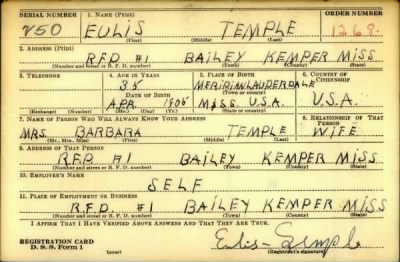 SERIAL NUMBER 1. NAME (Print) ORDER NUMBER
V50 EULIS TEMPLE 1268
(First) (Middle) (Last)
2. ADDRESS (Print)
R.F.D. #1 BAILEY KEMPER MISS
(Number and street or R. F. D. number) (Town) (County) (State)
3. TELEPHONE 4. AGE IN YEARS 5. PLACE OF BIRTH 6. COUNTRY OF CITIZENSHIP
35 MERIDIAN LAUDERDALE
DATE OF BIRTH (Town or county)
APR. 1905 MISS. U.S.A. U.S.A.
(Exchange) (Number) (Mo.) (Day) (Yr.) (State or country)
7. NAME OF PERSON WHO WILL ALWAYS KNOW YOUR ADDRESS 8. RELATIONSHIP OF THAT PERSON
MRS. BARBARA TEMPLE WIFE
(Mr., Mrs., Miss) (First) (Middle) (Last)
9. ADDRESS OF THAT PERSON
R.F.D. #1 BAILEY KEMPER MISS
(Number and street or R. F. D. number) (Town) (County) (State)
10. EMPLOYER'S NAME
SELF
11. PLACE OF EMPLOYMENT OR BUSINESS
R.F.D. #1 BAILEY KEMPER MISS
(Number and street or R. F. D. number) (Town) (County) (State)
I AFFIRM THAT I HAVE VERIFIED ABOVE ANSWERS AND THAT THEY ARE TRUE.
REGISTRATION CARD Eulis Temple
D. S. S. Form 1 (over) (Registrant's signature)